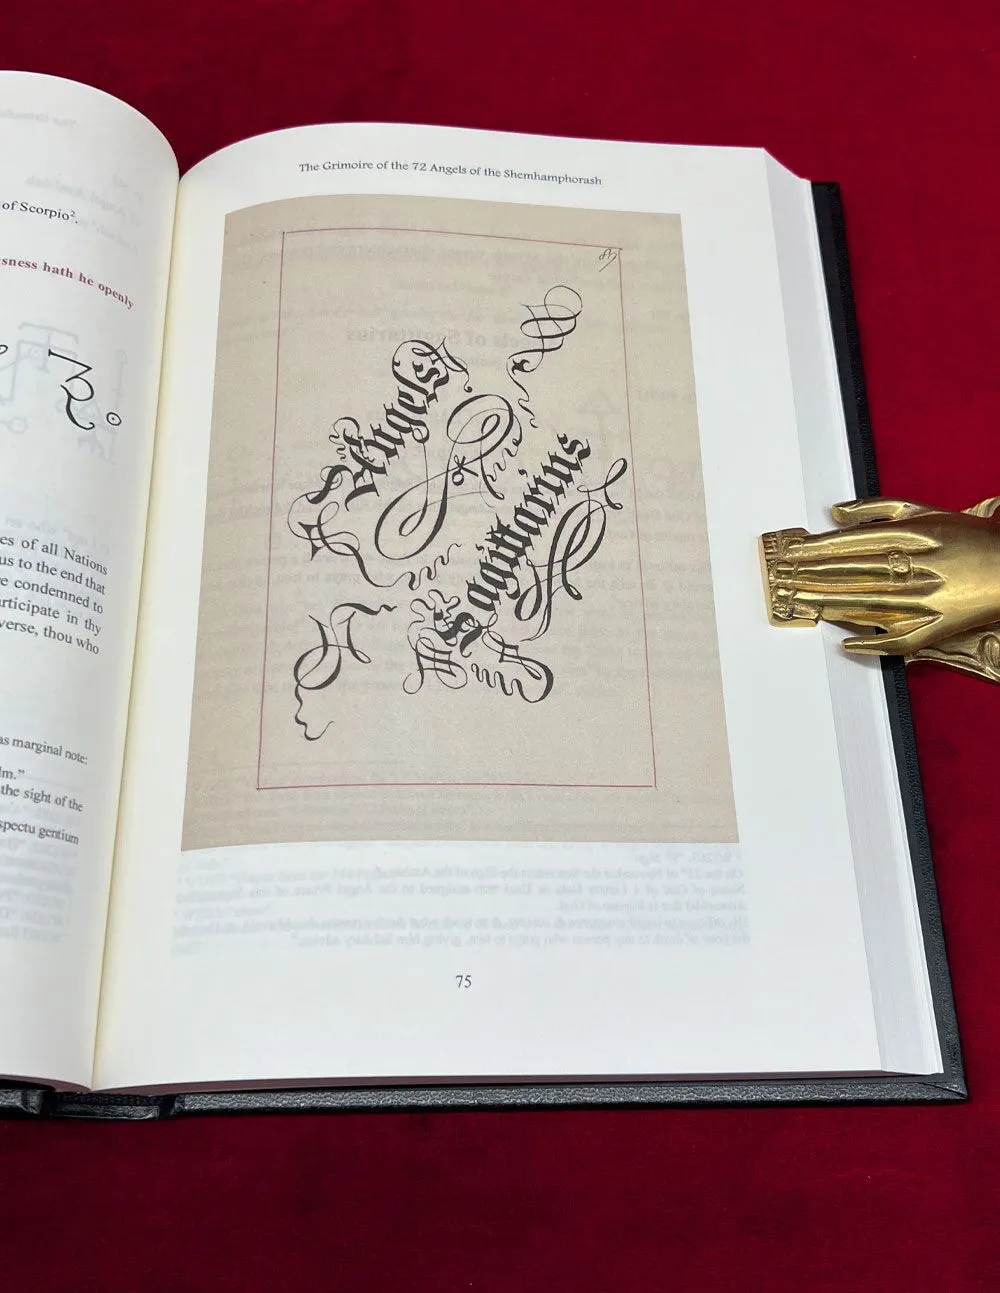 of Scorpio².
sness hath he openly
es of all Nations
us to the end that
e condemned to
rticipate in thy
verse, thou who
as marginal note:
lm."
the sight of the
spectu gentium
The Grimoire of the 72 Angels of the Shemhamphorash
Angels
Sagittarius
75